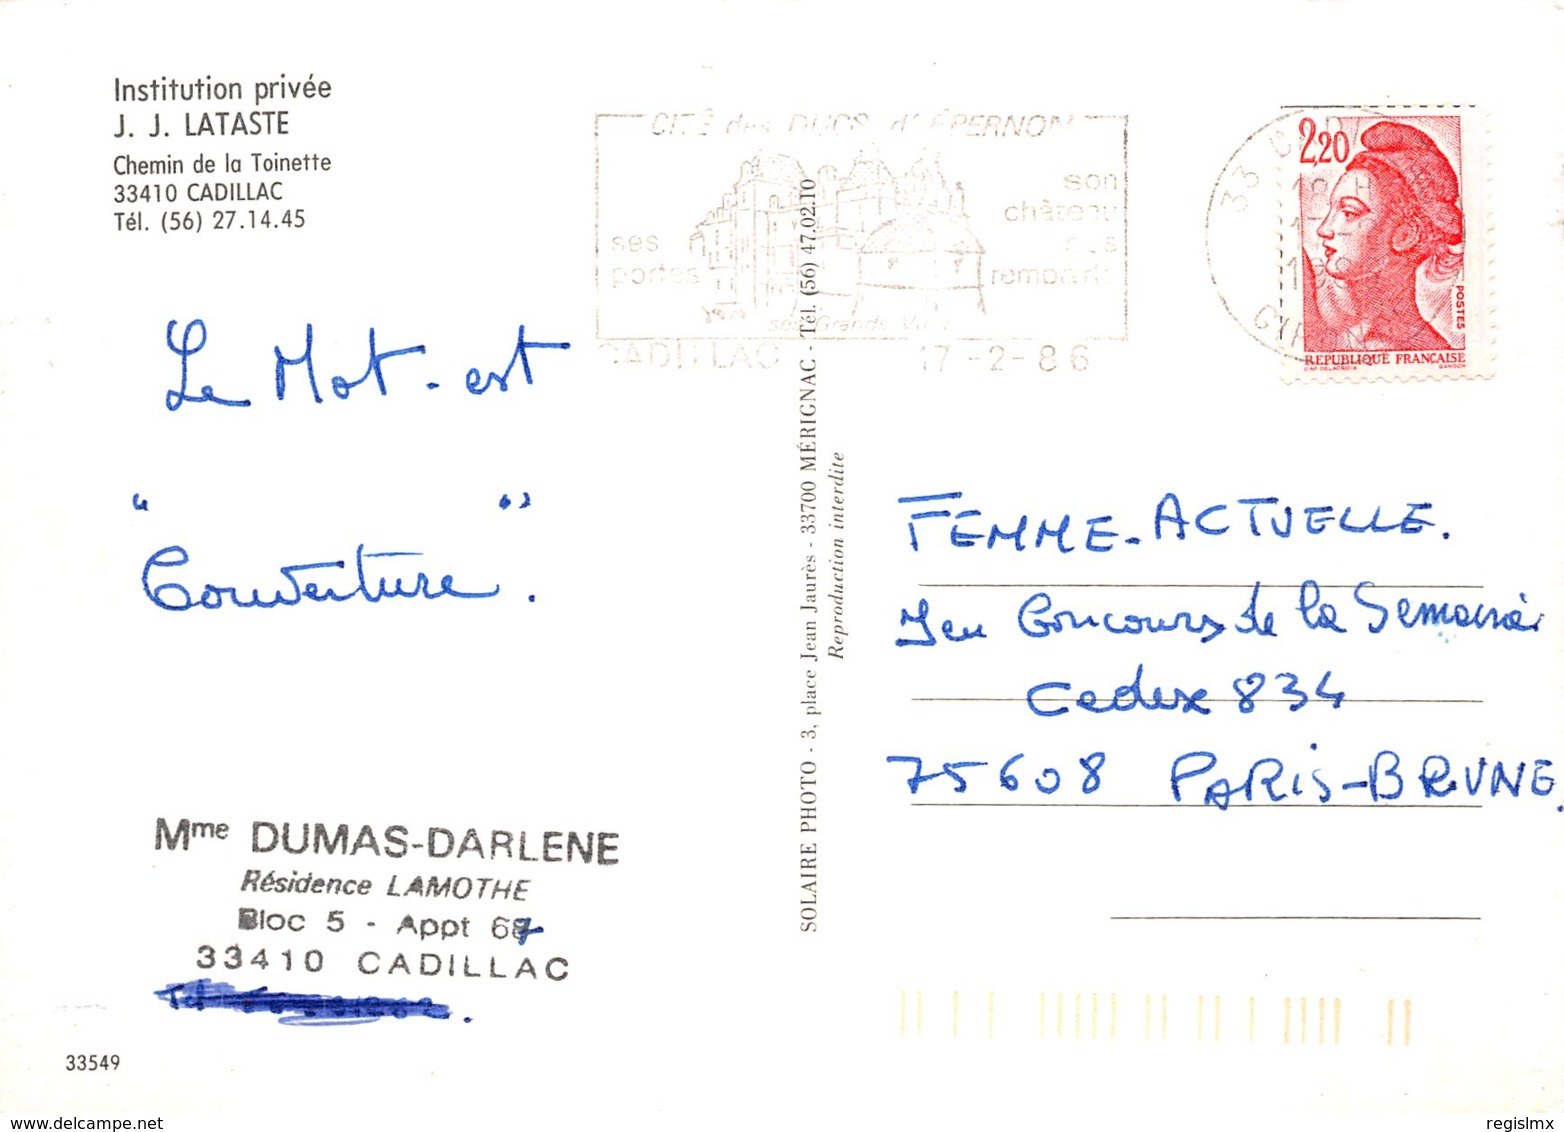 Institution privée
J. J. LATASTE
Chemin de la Toinette
33410 CADILLAC
Tél. (56) 27.14.45
CITÉ des DUCS d'ÉPERNON
son
château
ses
portes
ses
remparts
ses Grands Vins
CADILLAC 17-2-86
33
18 H
2,20
POSTES
REPUBLIQUE FRANCAISE
D'AP. DELACROIX GANDON
Le Mot-est
" "
Couverture.
SOLAIRE PHOTO - 3, place Jean Jaurès - 33700 MÉRIGNAC - Tél. (56) 47.02.10
Reproduction interdite
FEMME-ACTUELLE.
Jeu Concours de la Semaine
Cedex 834
75608 PARIS-BRUNE.
Mme DUMAS-DARLENE
Résidence LAMOTHE
Bloc 5 - Appt 67
33410 CADILLAC
33549
www.delcampe.net
regislmx